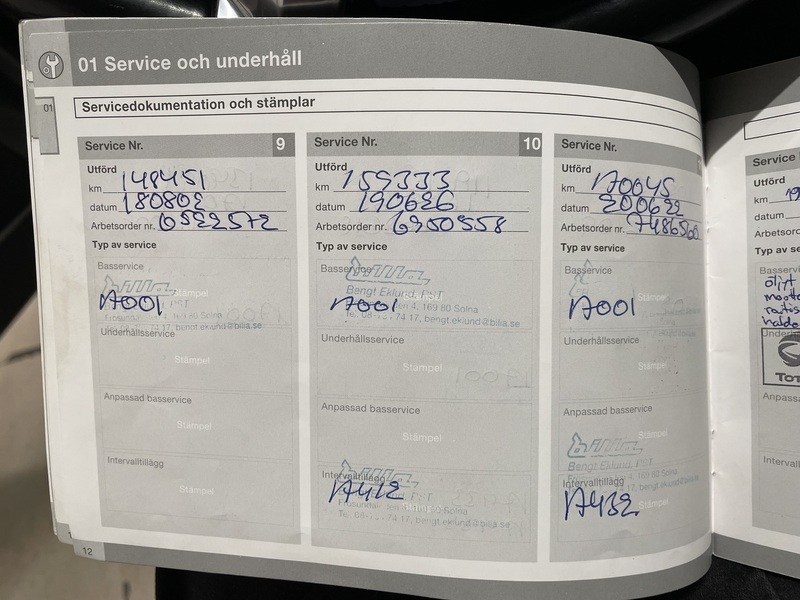 01 Service och underhåll
01
Servicedokumentation och stämplar
Service Nr. 9
Utförd
km 148451
datum 180802
Arbetsorder nr. 6522572
Typ av service
Basservice
Stämpel
17001
Solna
bengt eklund@bilia.se
Underhållsservice
Stämpel
Anpassad basservice
Stämpel
Intervalltillägg
Stämpel
Service Nr. 10
Utförd
km 159333
datum 190626
Arbetsorder nr. 6900558
Typ av service
Basservice
bilia
Bengt Eklund, PST
17001
4, 169 80 Solna
74 17, bengt eklund@bilia.se
Underhållsservice
Stämpel
Anpassad basservice
Stämpel
Intervalltillägg
bilia
17412
Solna
74 17, bengt.eklund@bilia.se
Service Nr.
Utförd
km 170045
datum 200622
Arbetsorder nr. 7486560
Typ av service
Basservice
Stämpel
17001
Underhållsservice
Stämpel
Anpassad basservice
Stämpel
bilia
Bengt Eklund, PST
169 80 Solna
Intervalltillägg
74 17, bengt.eklund@bilia.se
17432
Stämpel
Service
Utförd
km
datum
Arbetsord
Typ av se
Basservice
öljyt
Anpassa
Intervall
12